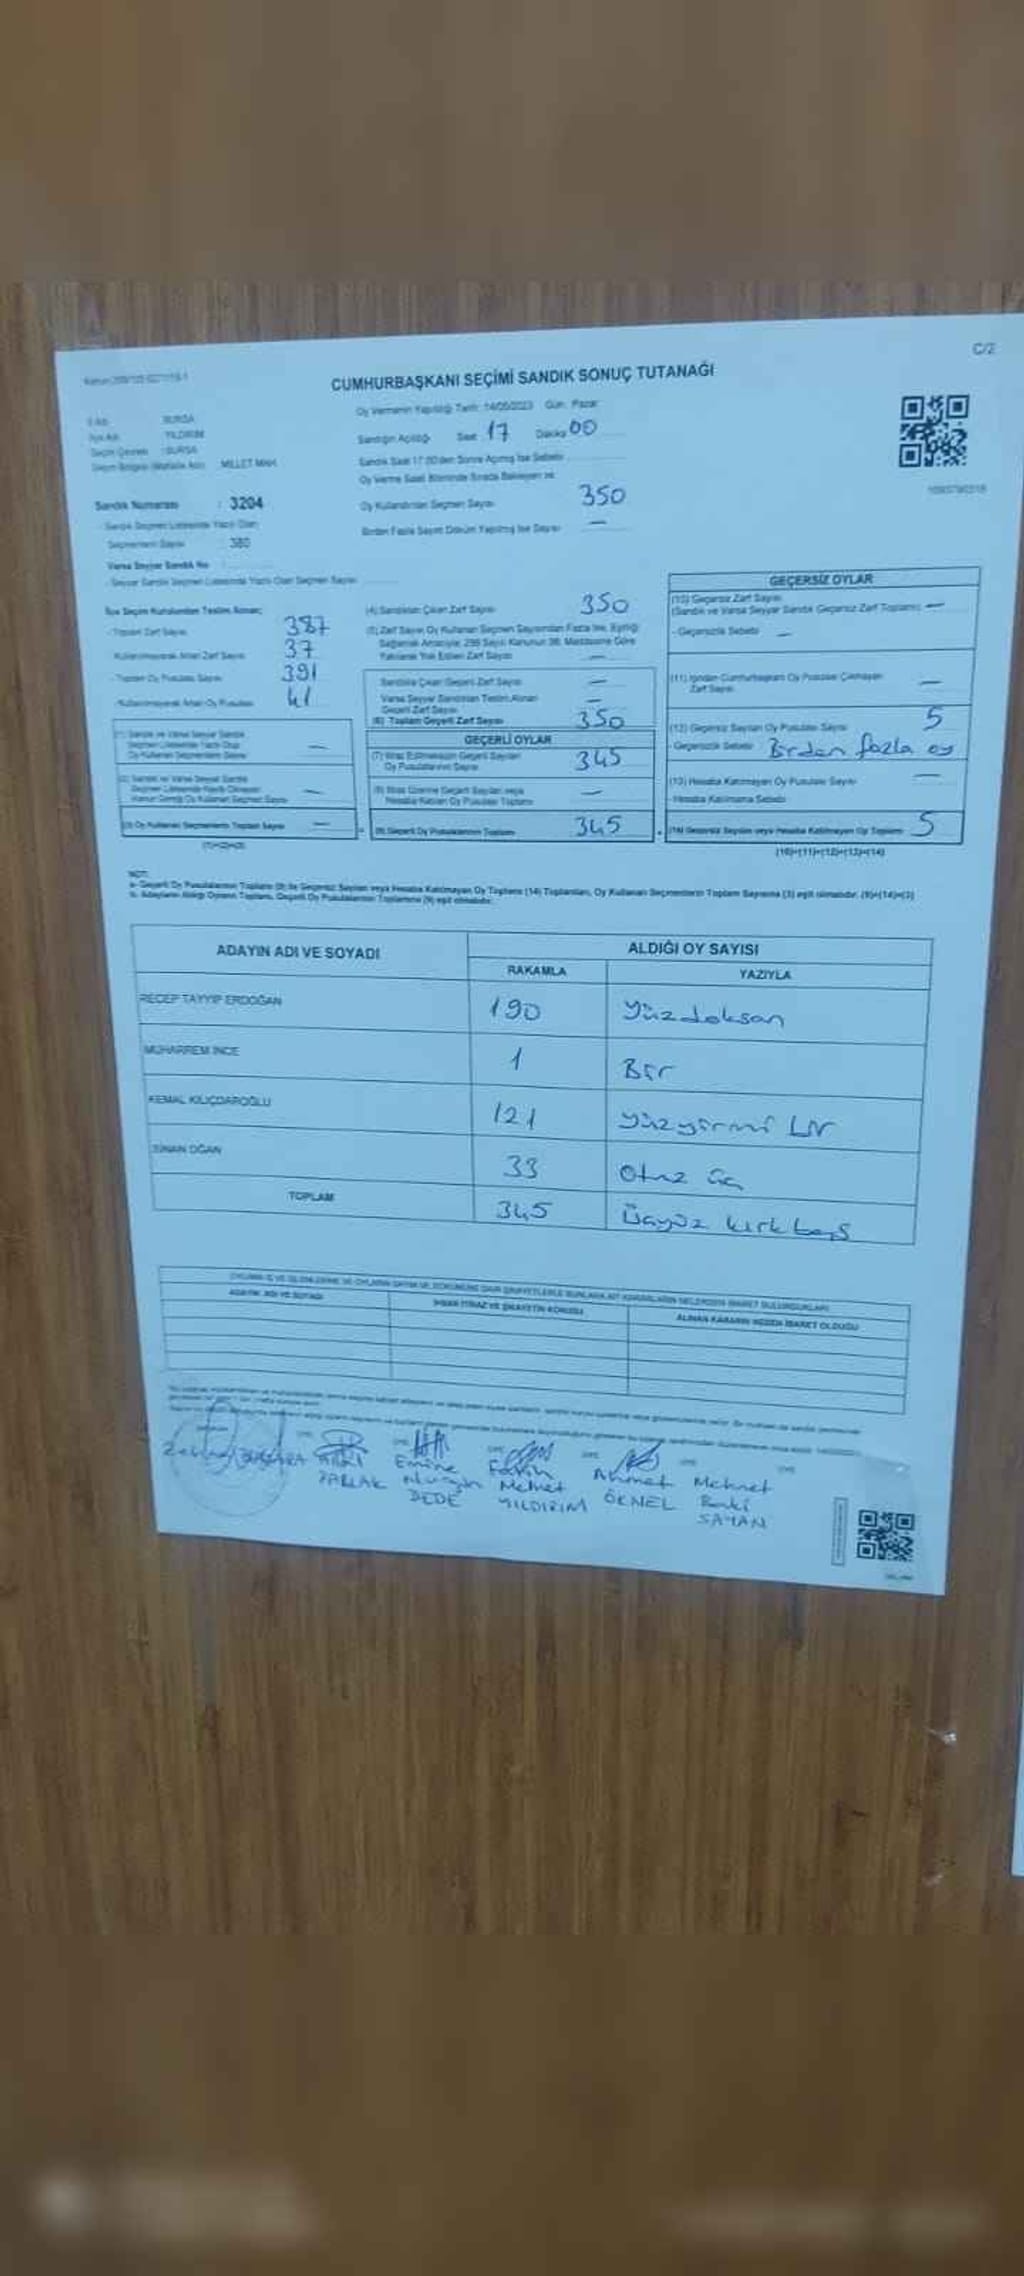 C/2
CUMHURBAŞKANI SEÇİMİ SANDIK SONUÇ TUTANAĞI
Oy Vermenin Yapıldığı Tarih: 14/05/2023 Gün: Pazar
İl Adı : BURSA
İlçe Adı : YILDIRIM
Seçim Çevresi : BURSA
Seçim Bölgesi (Mahalle Adı) : MİLLET MAH.
Sandığın Açıldığı Saat 17 Dakika 00
Sandık Saat 17.00'den Sonra Açılmış İse Sebebi
Oy Verme Saati Bitiminde Sırada Bekleyen ve
Oy Kullandırılan Seçmen Sayısı 350
Birden Fazla Sayım Döküm Yapılmış İse Sayısı —
Sandık Numarası : 3204
- Sandık Seçmen Listesinde Yazılı Olan
Seçmenlerin Sayısı : 380
Varsa Seyyar Sandık No :
- Seyyar Sandık Seçmen Listesinde Yazılı Olan Seçmen Sayısı
İlçe Seçim Kurulundan Teslim Alınan;
- Toplam Zarf Sayısı 387
- Kullanılmayarak Artan Zarf Sayısı 37
- Toplam Oy Pusulası Sayısı 391
- Kullanılmayarak Artan Oy Pusulası 41
(1) Sandık ve Varsa Seyyar Sandık
Seçmen Listesinde Yazılı Olup
Oy Kullanan Seçmenlerin Sayısı —
(2) Sandık ve Varsa Seyyar Sandık
Seçmen Listesinde Kayıtlı Olmayan
Kanun Gereği Oy Kullanan Seçmen Sayısı —
(3) Oy Kullanan Seçmenlerin Toplam Sayısı —
(1)+(2)=(3)
(4) Sandıktan Çıkan Zarf Sayısı 350
(5) Zarf Sayısı Oy Kullanan Seçmen Sayısından Fazla İse, Eşitliği
Sağlamak Amacıyla; 298 Sayılı Kanunun 98. Maddesine Göre
Yakılarak Yok Edilen Zarf Sayısı —
Sandıkta Çıkan Geçerli Zarf Sayısı —
Varsa Seyyar Sandıktan Teslim Alınan
Geçerli Zarf Sayısı —
(6) Toplam Geçerli Zarf Sayısı 350
GEÇERLİ OYLAR
(7) İtiraz Edilmeksizin Geçerli Sayılan
Oy Pusulalarının Sayısı 345
(8) İtiraz Üzerine Geçerli Sayılan veya
Hesaba Katılan Oy Pusulası Toplamı —
(9) Geçerli Oy Pusulalarının Toplamı 345
GEÇERSİZ OYLAR
(10) Geçersiz Zarf Sayısı
(Sandık ve Varsa Seyyar Sandık Geçersiz Zarf Toplamı) —
- Geçersizlik Sebebi —
(11) İçinden Cumhurbaşkanı Oy Pusulası Çıkmayan
Zarf Sayısı —
(12) Geçersiz Sayılan Oy Pusulası Sayısı 5
- Geçersizlik Sebebi Birden fazla oy
(13) Hesaba Katılmayan Oy Pusulası Sayısı —
- Hesaba Katılmama Sebebi
(14) Geçersiz Sayılan veya Hesaba Katılmayan Oy Toplamı 5
(10)+(11)+(12)+(13)=(14)
NOT:
a- Geçerli Oy Pusulalarının Toplamı (9) ile Geçersiz Sayılan veya Hesaba Katılmayan Oy Toplamı (14) Toplamları, Oy Kullanan Seçmenlerin Toplam Sayısına (3) eşit olmalıdır. (9)+(14)=(3)
b- Adayların Aldığı Oyların Toplamı, Geçerli Oy Pusulalarının Toplamına (9) eşit olmalıdır.
ADAYIN ADI VE SOYADI
ALDIĞI OY SAYISI
RAKAMLA YAZIYLA
RECEP TAYYİP ERDOĞAN 190 Yüzdoksan
MUHARREM İNCE 1 Bir
KEMAL KILIÇDAROĞLU 121 Yüzyirmi bir
SİNAN OĞAN 33 Otuz üç
TOPLAM 345 Üçyüz kırk beş
ADAYIN ADI VE SOYADI
ALINAN KARARIN NEDEN İBARET OLDUĞU
PARLAK
Emine Nurgün DEDE
Fatih Mehmet YILDIRIM
Ahmet ÖKNEL
Mehmet Baki SAYAN